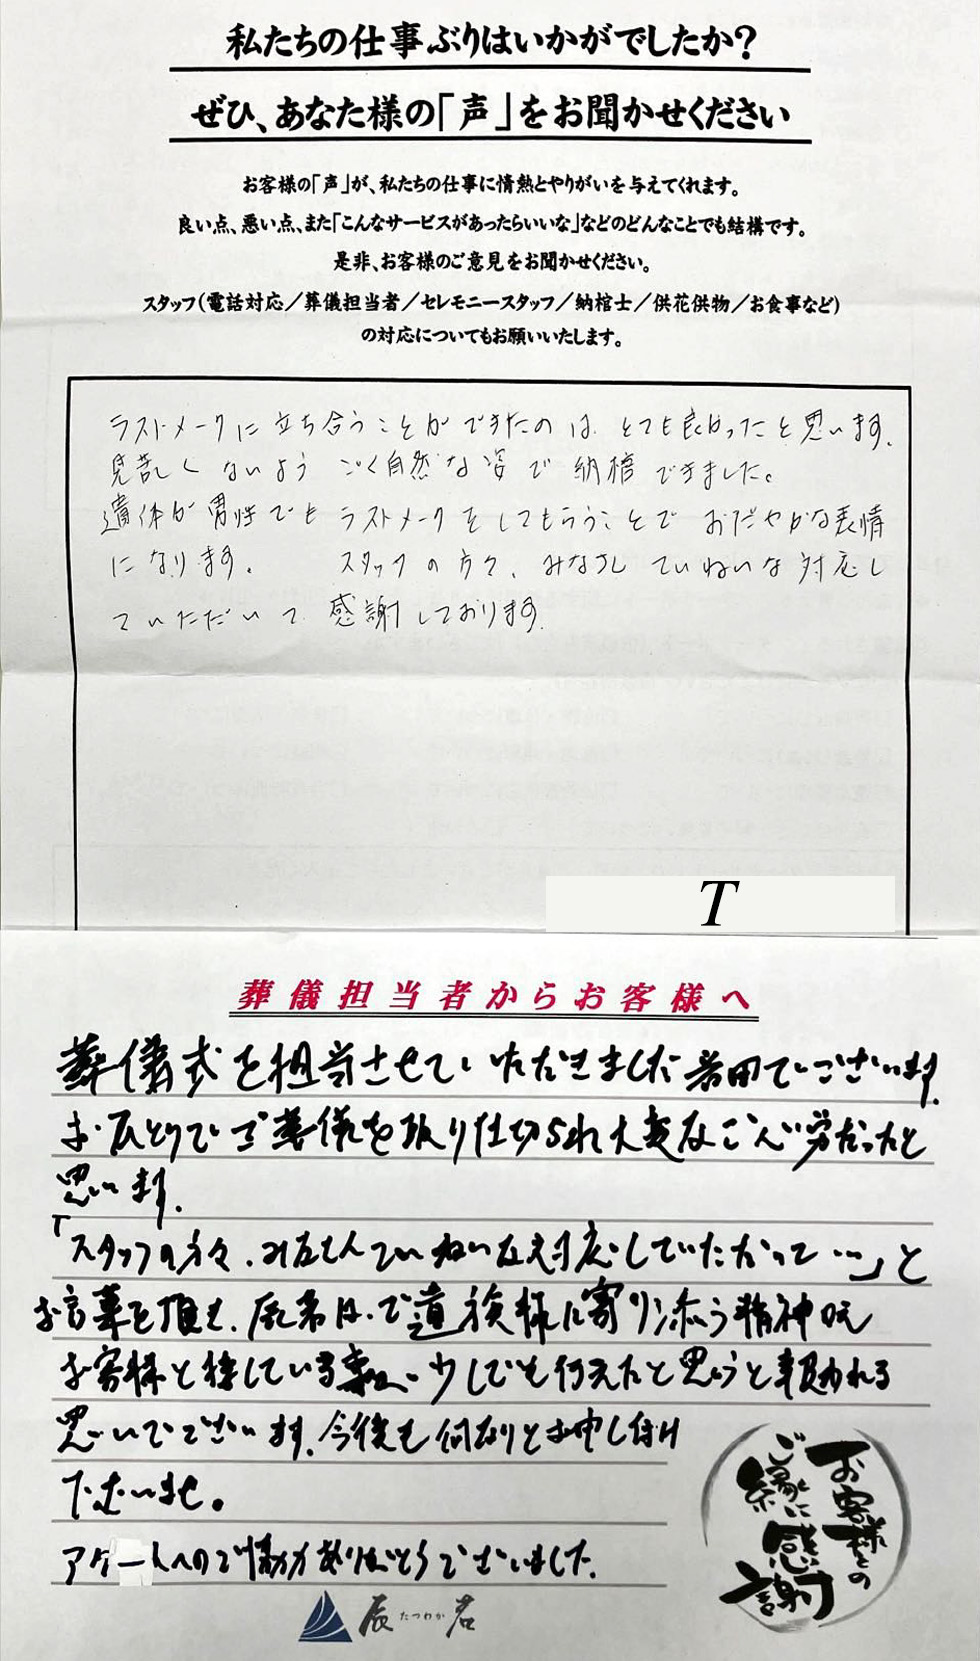 私たちの仕事ぶりはいかがでしたか？
ぜひ、あなた様の「声」をお聞かせください
お客様の「声」が、私たちの仕事に情熱とやりがいを与えてくれます。
良い点、悪い点、また「こんなサービスがあったらいいな」などのどんなことでも結構です。
是非、お客様のご意見をお聞かせください。
スタッフ（電話対応／葬儀担当者／セレモニースタッフ／納棺士／供花供物／お食事など）
の対応についてもお願いいたします。
ラストメークに立ち合うことができたのは、とても良かったと思います。
見苦しくないよう ごく自然な姿で 納棺できました。
遺体が男性でも ラストメークをしてもらうことで おだやかな表情
になります。 スタッフの方々、みなさん ていねいな対応し
ていただいて 感謝しております。
T
葬儀担当者からお客様へ
葬儀式を担当させていただきました岩田でございます。
お一人でご葬儀を取り仕切られ大変なご心労だったと
思います。
「スタッフの方々、みなさんていねいな対応していただいて…」と
お言葉を頂き、辰若は、ご遺族様に寄り添う精神で
お客様と接している事が少しでも行えたと思うと報われる
思いでございます。今後も何なりとお申し付け
下さいませ。
アンケートへのご協力ありがとうございました。
辰 たつわか 若
お客様との
ご縁に
感謝